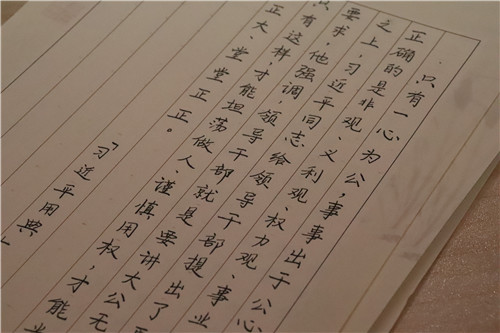 、只有一心为公，事事出于公心
正确的是非观、义利观、权力观、事业
之上，习近平同志给领导干部提出了
要求，他强调，领导干部就是要讲大公无
只有这样，才能坦荡做人、谨慎用权，才能
正大、堂堂正正。
「习近平用典」